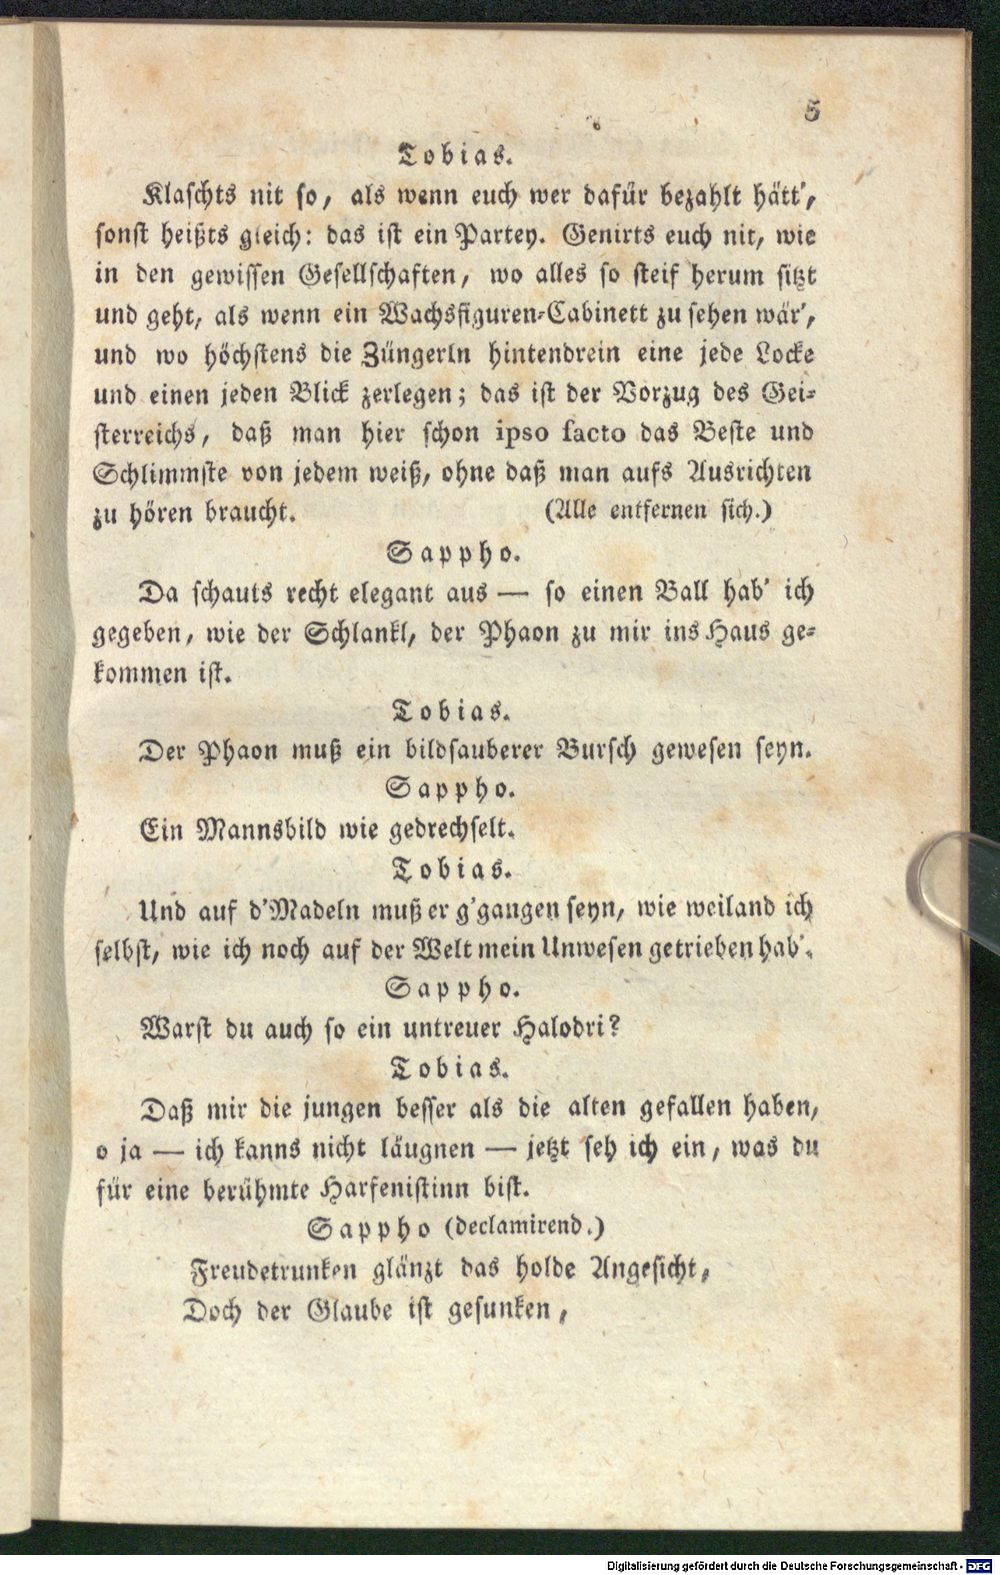 5
Tobias.
Klaschts nit so, als wenn euch wer dafür bezahlt hätt',
sonst heißts gleich: das ist ein Partey. Genirts euch nit, wie
in den gewissen Gesellschaften, wo alles so steif herum sitzt
und geht, als wenn ein Wachsfiguren-Cabinett zu sehen wär',
und wo höchstens die Züngerln hintendrein eine jede Locke
und einen jeden Blick zerlegen; das ist der Vorzug des Gei-
sterreichs, daß man hier schon ipso facto das Beste und
Schlimmste von jedem weiß, ohne daß man aufs Ausrichten
zu hören braucht. (Alle entfernen sich.)
Sappho.
Da schauts recht elegant aus — so einen Ball hab' ich
gegeben, wie der Schlankl, der Phaon zu mir ins Haus ge-
kommen ist.
Tobias.
Der Phaon muß ein bildsauberer Bursch gewesen seyn.
Sappho.
Ein Mannsbild wie gedrechselt.
Tobias.
Und auf d'Madeln muß er g'gangen seyn, wie weiland ich
selbst, wie ich noch auf der Welt mein Unwesen getrieben hab'.
Sappho.
Warst du auch so ein untreuer Halodri?
Tobias.
Daß mir die jungen besser als die alten gefallen haben,
o ja — ich kanns nicht läugnen — jetzt seh ich ein, was du
für eine berühmte Harfenistinn bist.
Sappho (declamirend.)
Freudetrunken glänzt das holde Angesicht,
Doch der Glaube ist gesunken,
Digitalisierung gefördert durch die Deutsche Forschungsgemeinschaft - DFG